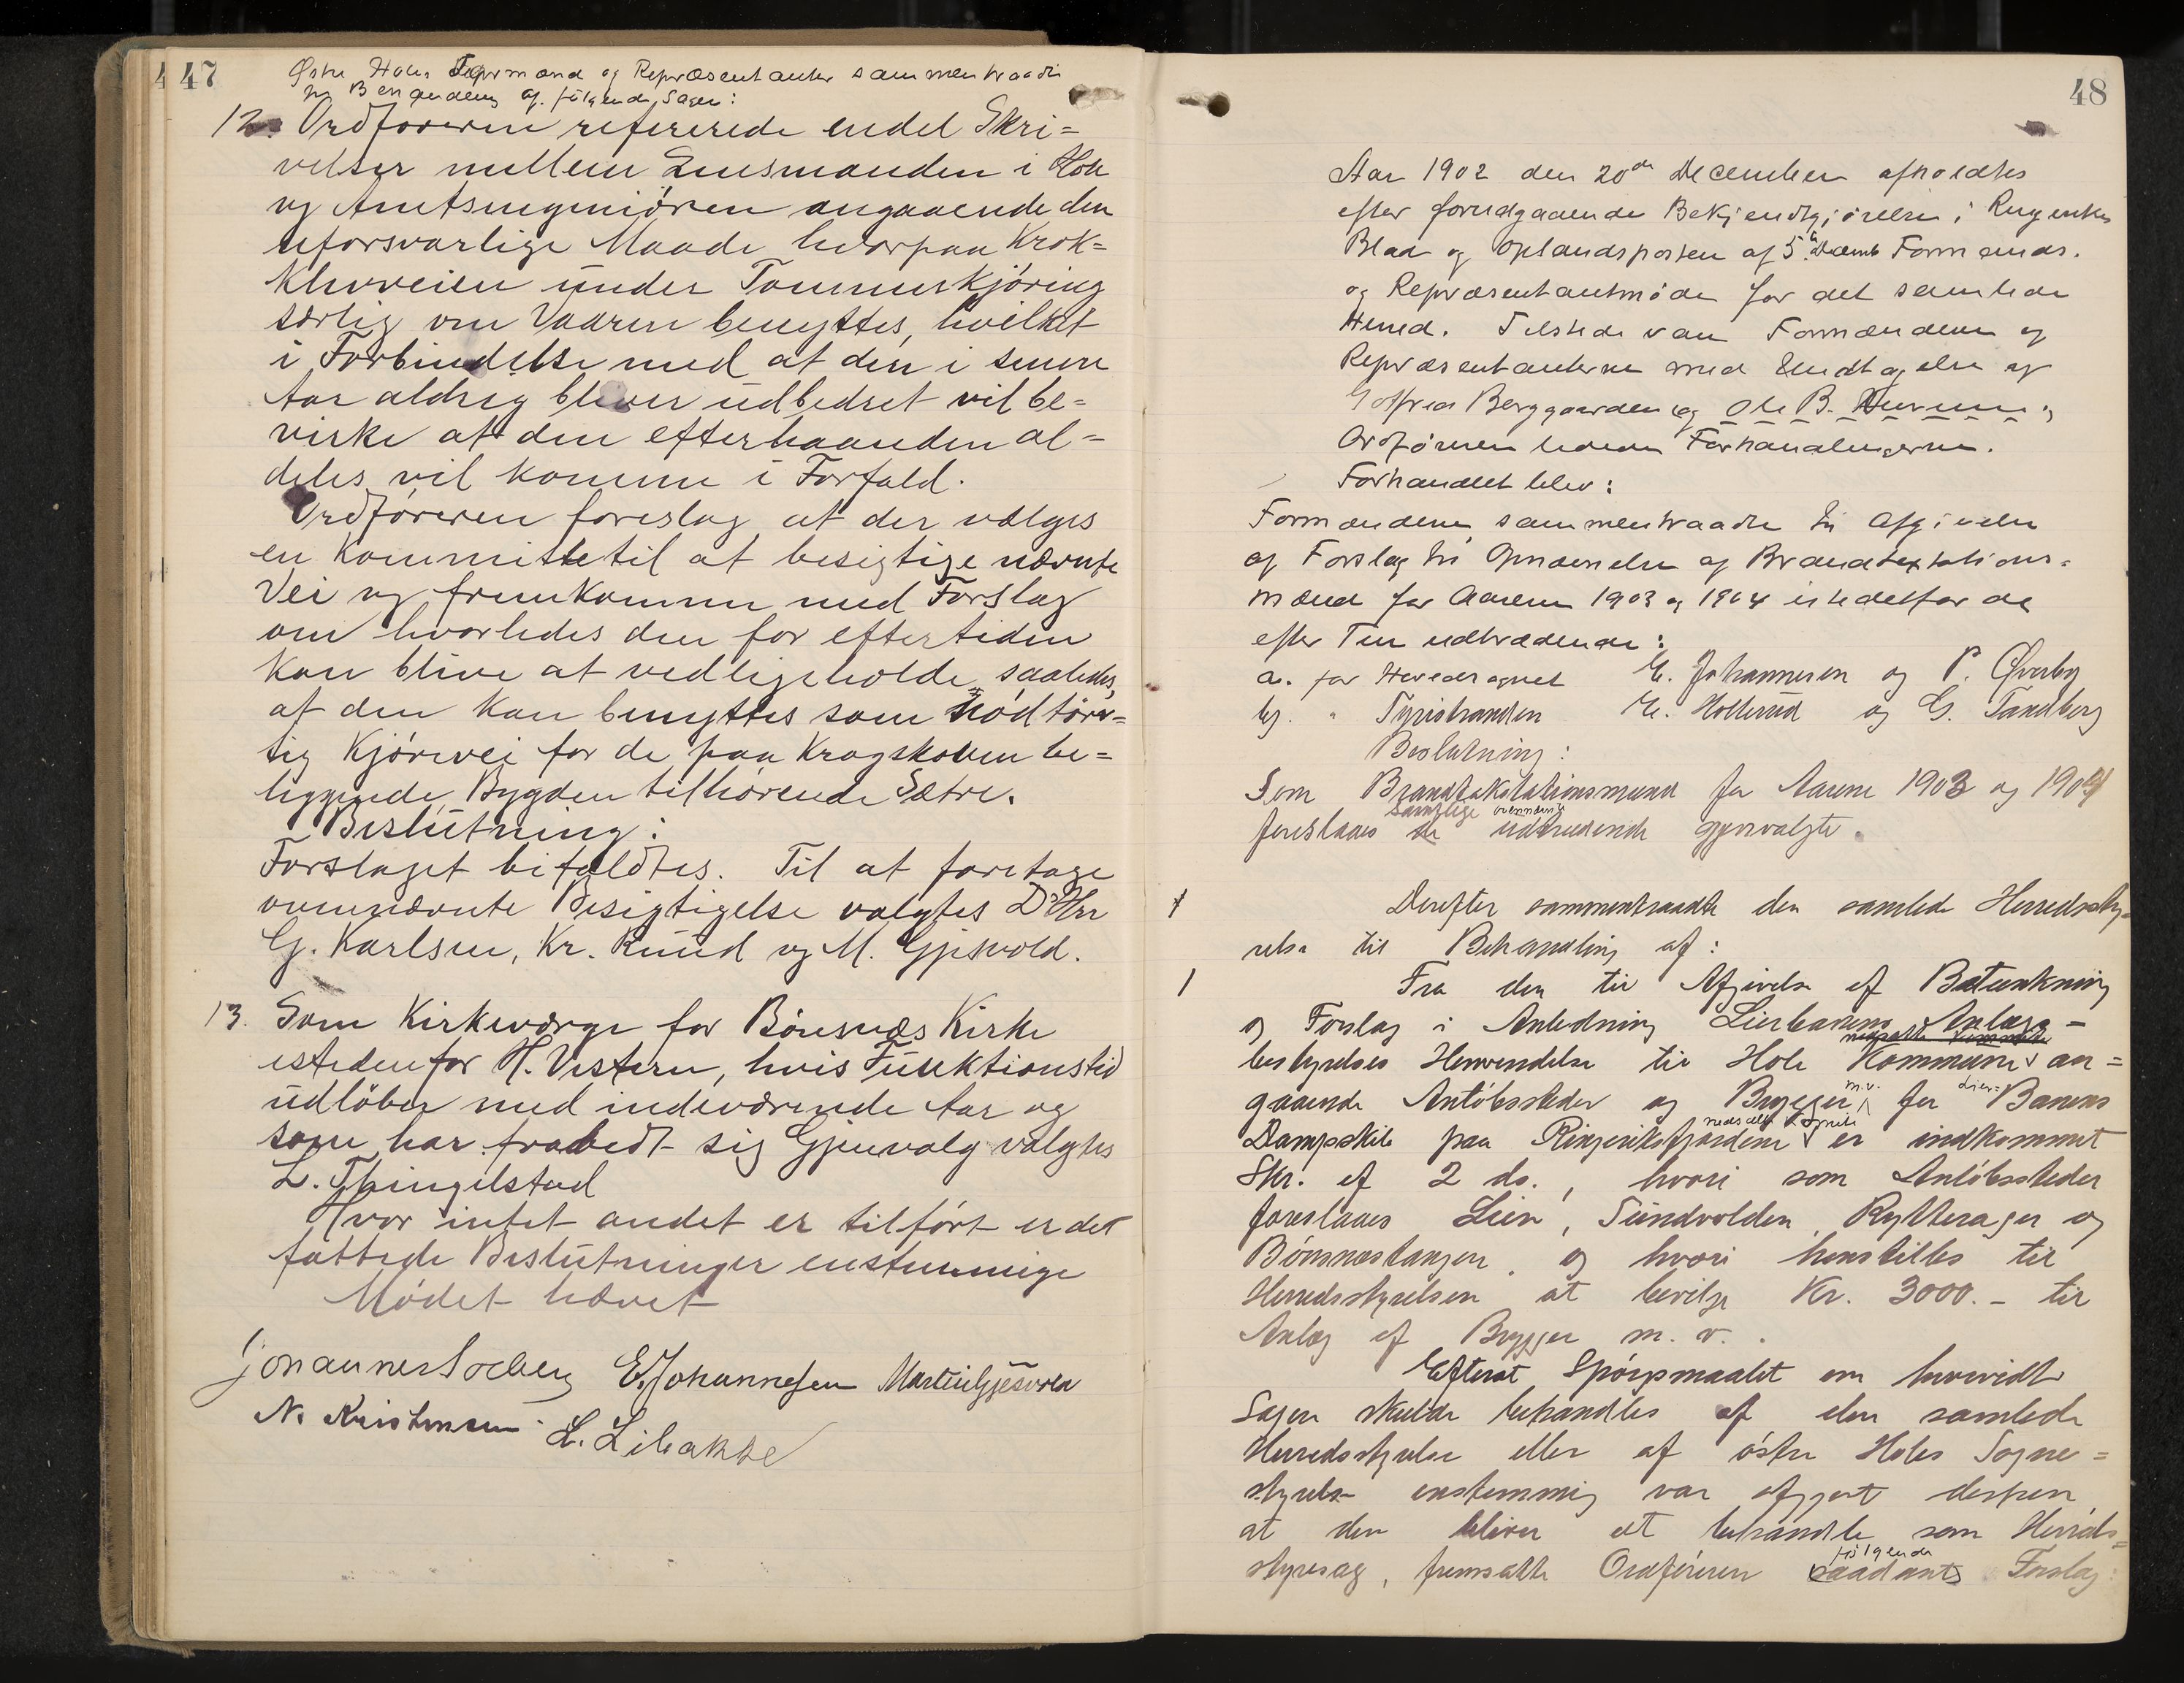 47
Østre Holes Formænd og Repræsentanter sammentraadte
til Behandling af følgende Sager:
12. Ordføreren refererede endel Skri=
velser mellem Lensmanden i Hole
og Amtsingeniøren angaaende den
uforsvarlige Maade hvorpaa Krok=
klevveien under Tømmerkjøring
særlig om Vaaren benyttes, hvilket
i Forbindelse med at den i senere
Aar aldrig bliver udbedret vil be=
virke at den efterhaanden al=
deles vil komme i Forfald.
Ordføreren foreslog at der vælges
en Kommitte til at besigtige nævnte
Vei og fremkomme med Forslag
om hvorledes den for eftertiden
kan blive at vedligeholde saaledes,
at den kan benyttes som nødtørv=
tig Kjørevei for de paa Krogskoven be=
liggende Bygden tilhørende Sætre.
Beslutning:
Forslaget bifaldtes. Til at foretage
ovennævnte Besigtigelse valgtes D'Hrr
G. Karlsen, Kr. Ruud og M. Gjesvold.
13. Som Kirkeværge for Bønsnæs Kirke
istedenfor H. Vestern, hvis Funktionstid
udløber med indeværende Aar og
som har frabedt sig Gjenvalg valgtes
L. Thingelstad
Hvor intet andet er tilført er det
fattede Beslutninger enstemmige
Mødet hævet
Johannes Soelberg E. Johannesen Martin Gjesvold
N. Kristensen L. Libakke
48
Aar 1902 den 20de December afholdtes
efter forudgaaende Bekjendtgjørelse i Ringerikes
Blad og Oplandsposten af 5te Decemb Formænds-
og Repræsentantmøde for det samlede
Herred. Tilstede var Formændene og
Repræsentanterne med Undtagelse af
Gotfred Berggaarden og Ole B.
Ordføreren ledede Forhandlingerne.
Forhandlet blev:
Formændene sammentraadte til Afgivelse
af Forslag til Opnævnelse af Brandtaxtations=
mænd for Aarene 1903 og 1904 istedetfor de
efter Tur udtrædende:
a. for Hovedsognet E. Johannesen og P. Øverby
b. " Tyristranden E. Hollerud og G. Tandberg
Beslutning:
Som Brandtakstationsmænd for Aarene 1903 og 1904
samtlige ovennævnte
foreslaaes de udtrædende gjenvalgte.
Derefter sammentraadte den samlede Herredssty=
relse til Behandling af:
1 Fra den til Afgivelse af Betænkning
og Forslag i Anledning Lierbanens Anlægs=
nedsatte Kommitte
bestyrelses Henvendelse til Hole Kommune an=
gaaende Anløbssteder og Brygger m.v. for Lier=Banens
nedsatte Komite
Dampskib paa Ringeriksfjordene er indkommet
Skr. af 2 ds., hvori som Anløbssteder
foreslaaes Lien, Sundvolden, Rytterager og
Bønsnæstangen, og hvori henstilles til
Herredsstyrelsen at bevilge Kr. 3000.- til
Anlæg af Brygger m. v.
Efterat Spørgsmaalet om hvorvidt
Sagen skulde behandles af den samlede
Herredsstyrelse eller af østre Holes Sogne=
styrelse enstemmig var afgjort derhen
at den bliver at behandle som Herreds=
følgende
styresag, fremsatte Ordføreren saadant Forslag: